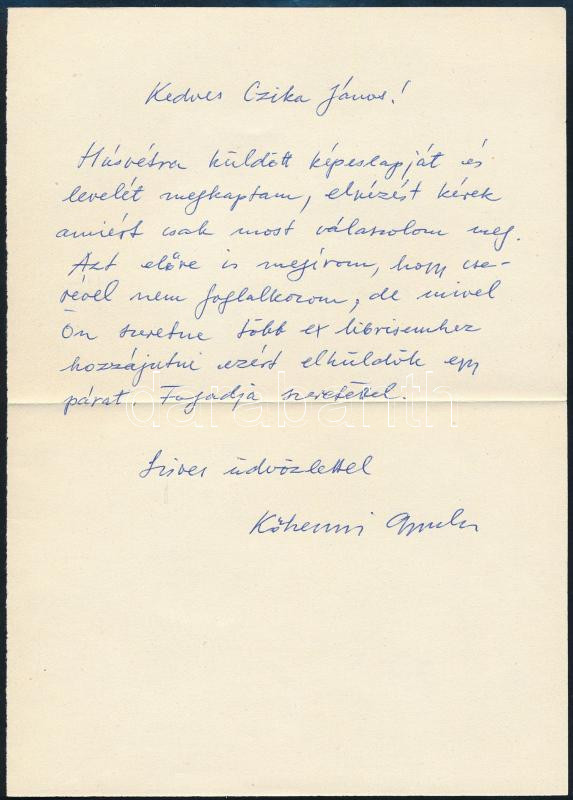 Kedves Czika János!
Húsvétra küldött képeslapját és
levelét megkaptam, elnézést kérek
amiért csak most válaszolom meg.
Azt előre is megírom, hogy cse-
rével nem foglalkozom, de mivel
Ön szeretne több ex librisemhez
hozzájutni ezért elküldök egy
párat. Fogadja szeretettel.
darabanth
Szíves üdvözlettel
Gyula